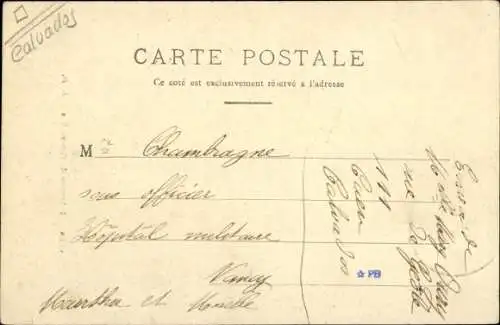 Calvados
CARTE POSTALE
Ce côté est exclusivement réservé à l'adresse
M Chambragne
sous officier
Hôpital militaire
Nancy
et
Envoi de
rue
111
Caen
Calvados
PB